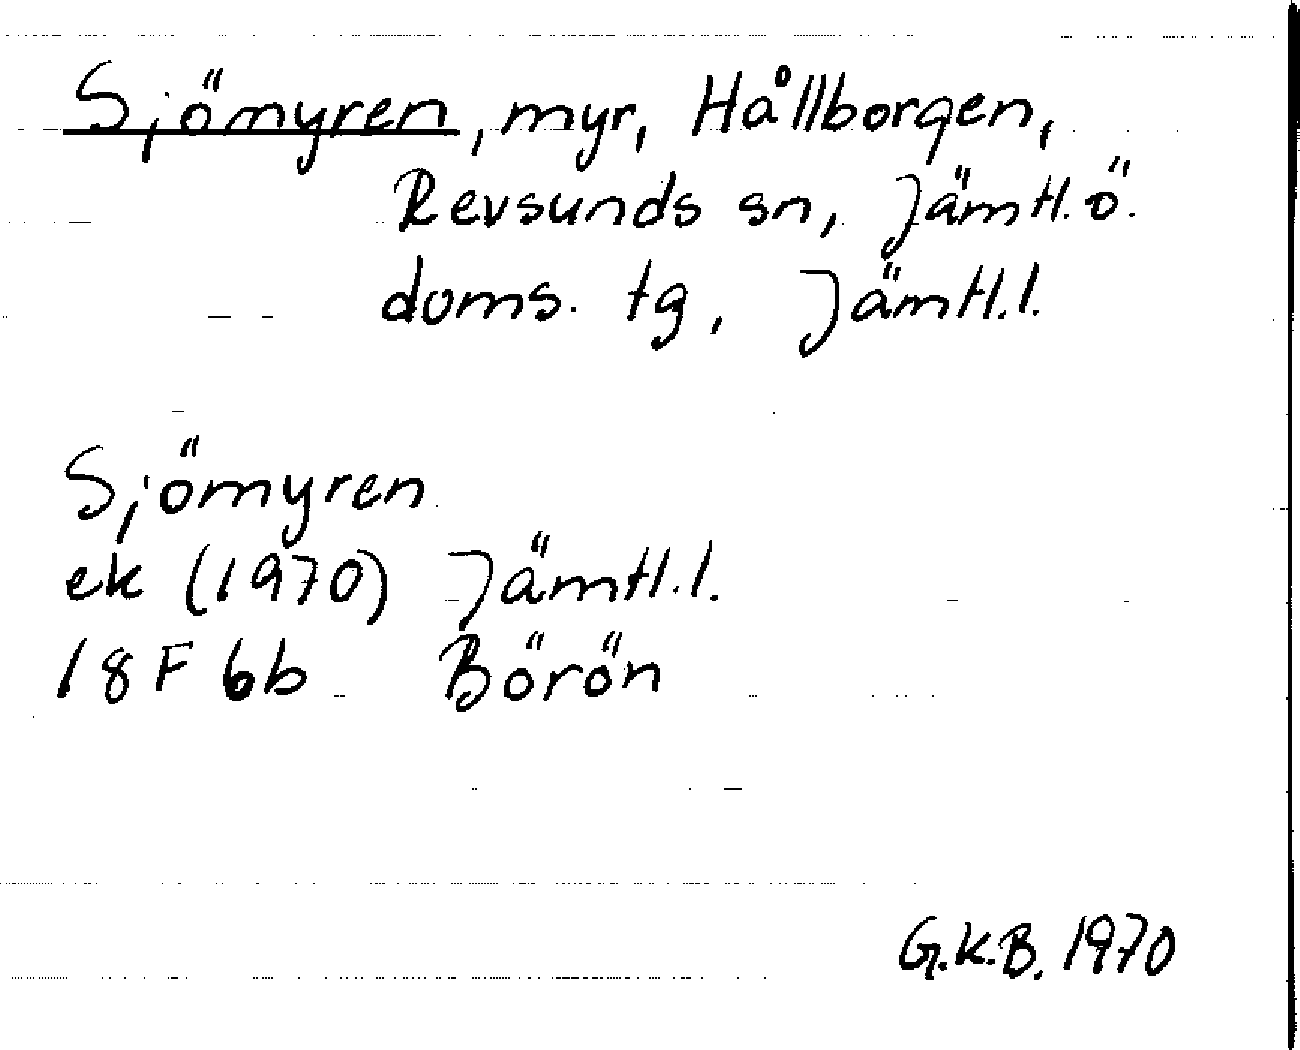 Sjömyren, myr, Hållborgen,
Revsunds sn, Jämtl. ö.
doms. tg, Jämtl. l.
Sjömyren
ek (1970) Jämtl. l.
18 F 6b Börön
G.K.B. 1970